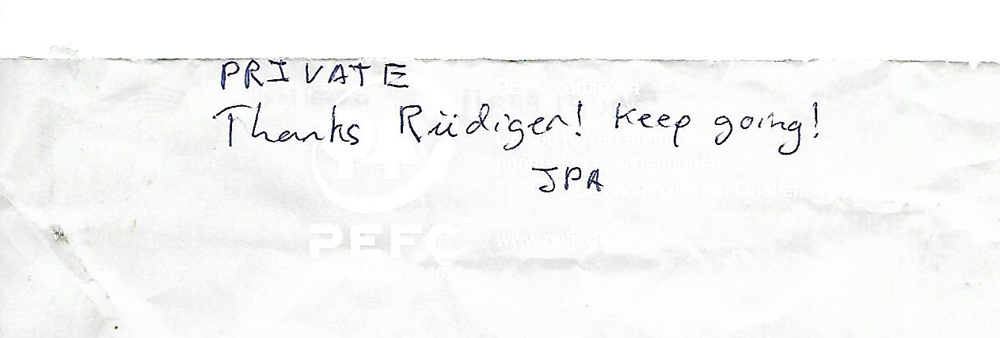 PRIVATE
Thanks Rüdiger! Keep going!
JPA
PEFC
www.pefc.de